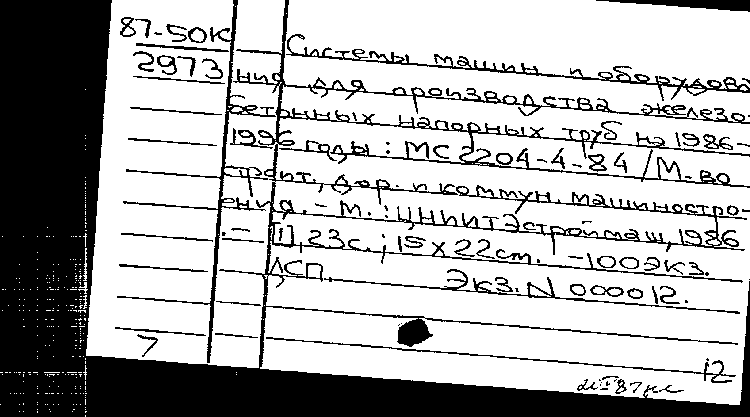 87-50К
2973
Системы машин и оборудова
ния для производства железо-
бетонных напорных труб на 1986-
1996 годы : МС 2204-4-84 / М-во
строит., дор. и коммун. машиностро-
ения. - М. : ЦНИИТЭстроймаш, 1986
. - [1], 23 с. ; 15 х 22 cm. -100 экз.
ДСП. Экз. N 000012.
7
12